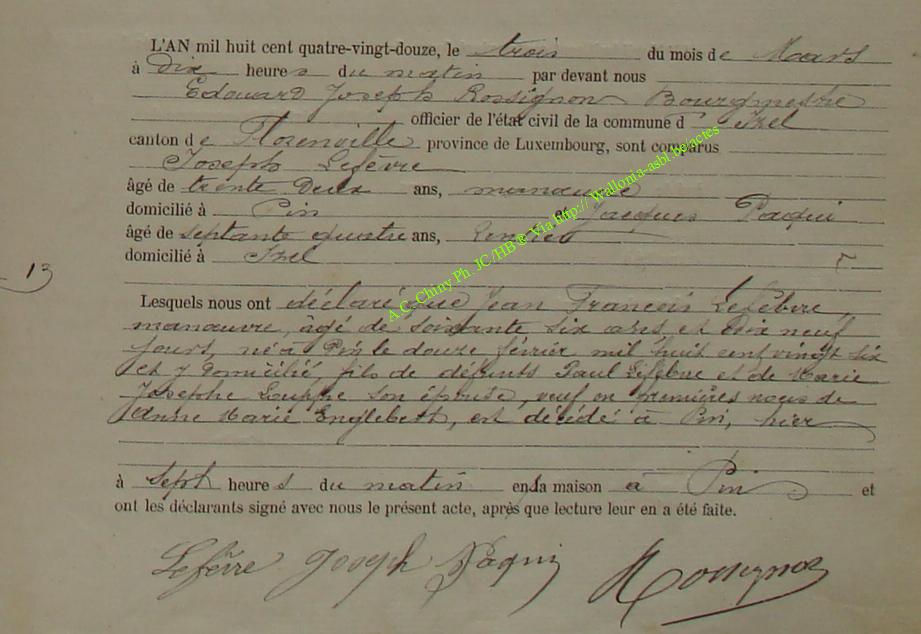 L'AN mil huit cent quatre-vingt-douze, le trois du mois de Mars
à Dix heures du matin par devant nous
Edouard Joseph Rossignon Bourgmestre
officier de l'état civil de la commune d' Izel
canton de Florenville province de Luxembourg, sont comparus
Joseph Lefèvre
âgé de trente Deux ans, manœuvre
domicilié à Pin et Jacques Paqui
âgé de septante quatre ans, rentier
domicilié à Izel
13
Lesquels nous ont déclaré que Jean François Lefèbvre,
manœuvre, âgé de soixante six ans et dix neuf
jours, né à Pin le douze février mil huit cent vingt six
et y domicilié, fils de défunts Paul Lefèbvre et de Marie
Josephe Louppe son épouse, veuf en premières noces de
Anne Marie Englebert, est décédé à Pin, hier
à sept heures du matin en sa maison à Pin et
ont les déclarants signé avec nous le présent acte, après que lecture leur en a été faite.
Lefèvre Joseph J Paqui Rossignon
A.G. Chiny Ph. JC/HB ® Via http:// Wallonia-asbl.be/actes